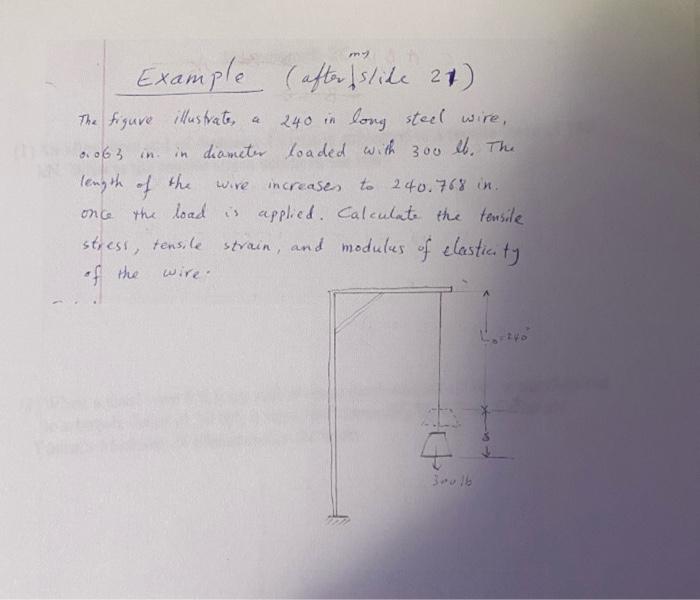 Example (after my slide 21)
The figure illustrates a 240 in long steel wire,
0.063 in. in diameter loaded with 300 lb. The
length of the wire increases to 240.768 in.
once the load is applied. Calculate the tensile
stress, tensile strain, and modulus of elasticity
of the wire.
L₀=240"
δ
300 lb